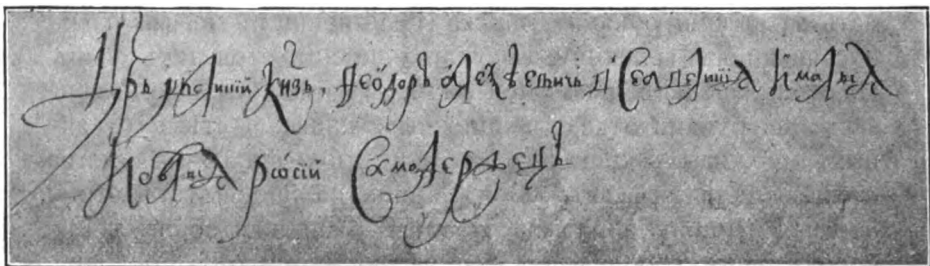 Црь ивеликий Кнзь, Ѳеѡдоръ алеѯѣевичь всеа великиѧ ималыѧ
ибѣлыѧ рѡсїй Самодержецъ